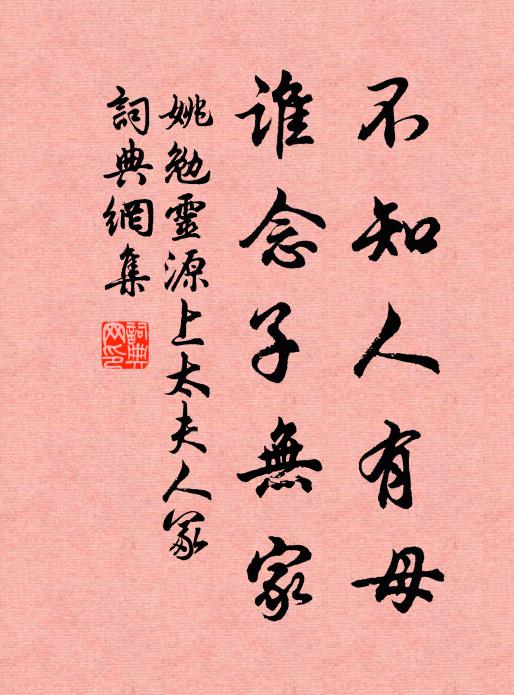 不知人有母
誰念子無家
姚勉靈源上太夫人冢
詞典網集
詞典网印